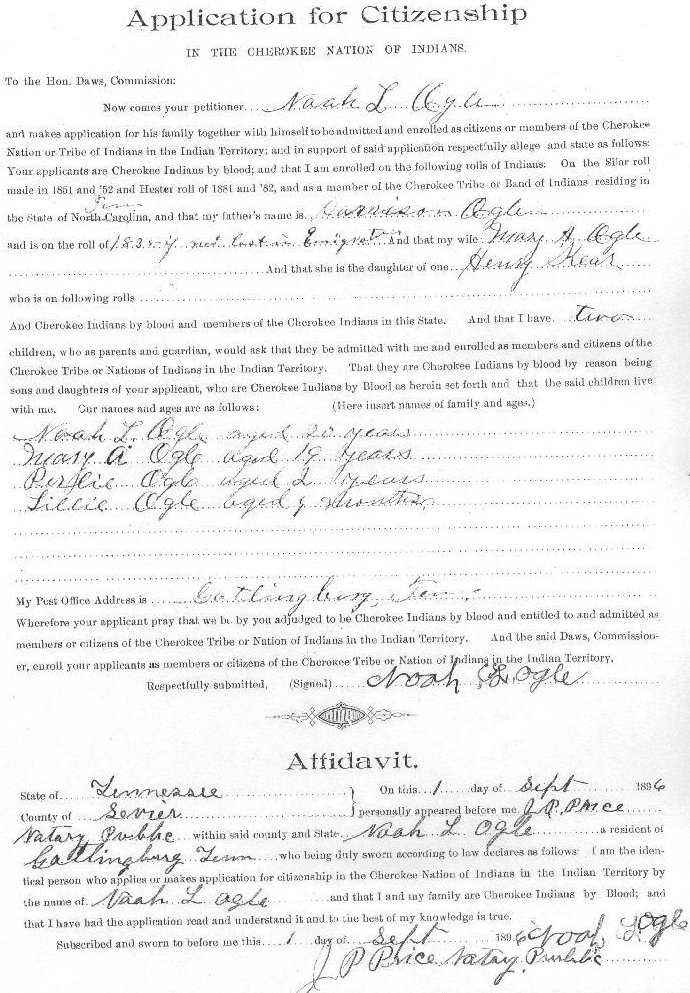 Application for Citizenship
IN THE CHEROKEE NATION OF INDIANS.
To the Hon. Daws, Commission:
Now comes your petitioner Noah L Ogle
and makes application for his family together with himself to be admitted and enrolled as citizens or members of the Cherokee
Nation or Tribe of Indians in the Indian Territory; and in support of said application respectfully allege and state as follows:
Your applicants are Cherokee Indians by blood; and that I am enrolled on the following rolls of Indians: On the Silar roll
made in 1851 and '52 and Hester roll of 1881 and '82, and as a member of the Cherokee Tribe or Band of Indians residing in
Tenn
the State of North Carolina, and that my father's name is Harrison Ogle
and is on the roll of 1835 if not lost in And that my wife Mary A Ogle
And that she is the daughter of one Henry
who is on following rolls
And Cherokee Indians by blood and members of the Cherokee Indians in this State. And that I have two
children, who as parents and guardian, would ask that they be admitted with me and enrolled as members and citizens of the
Cherokee Tribe or Nations of Indians in the Indian Territory. That they are Cherokee Indians by blood by reason being
sons and daughters of your applicant, who are Cherokee Indians by Blood as herein set forth and that the said children live
with me. Our names and ages are as follows: (Here insert names of family and ages.)
Noah L. Ogle aged years
Mary A Ogle aged 19 years
Ogle aged 2 years
Lillie Ogle aged months
My Post Office Address is Gatlingburg, Tenn
Wherefore your applicant pray that we be by you adjudged to be Cherokee Indians by blood and entitled to and admitted as
members or citizens of the Cherokee Tribe or Nation of Indians in the Indian Territory. And the said Daws, Commission-
er, enroll your applicants as members or citizens of the Cherokee Tribe or Nation of Indians in the Indian Territory.
Respectfully submitted, (Signed) Noah L. Ogle
Affidavit.
State of Tennessee } On this 1 day of Sept 1896
County of Sevier } personally appeared before me J. P. Price
Notary Public within said county and State Noah L Ogle a resident of
Gatlingburg Tenn who being duly sworn according to law declares as follows: I am the iden-
tical person who applies or makes application for citizenship in the Cherokee Nation of Indians in the Indian Territory by
the name of Noah L Ogle and that I and my family are Cherokee Indians by Blood; and
that I have had the application read and understand it and to the best of my knowledge is true.
Subscribed and sworn to before me this 1 day of Sept 1896 Noah L Ogle
J P Price Notary Public